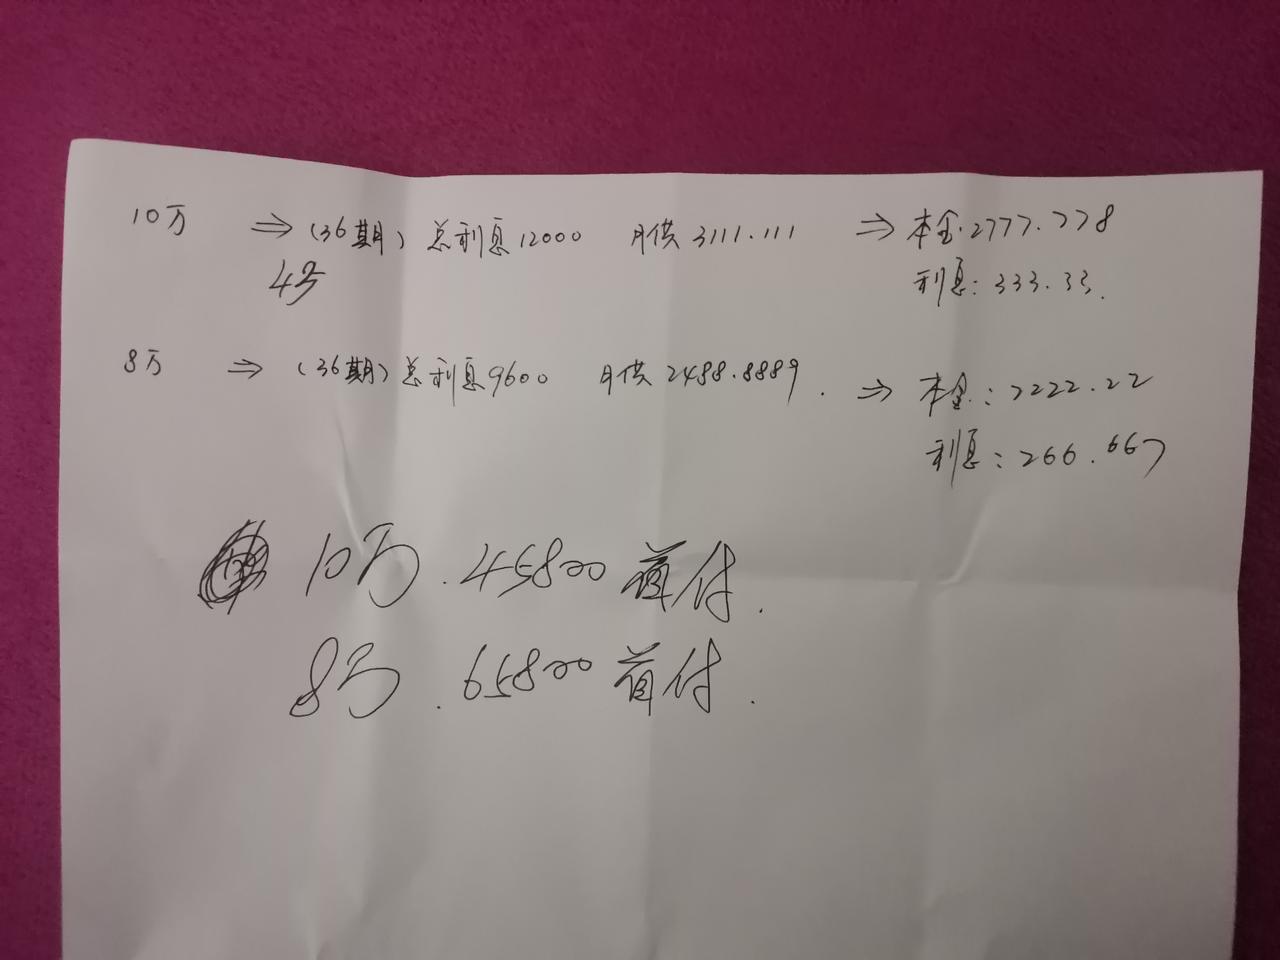 10万 ⇒ (36期) 总利息12000 月供3111.111 ⇒ 本金.2777.778
利息: 333.33.
4万
8万 ⇒ (36期) 总利息9600 月供2488.8889. ⇒ 本金: 2222.22
利息: 266.667
10万.45800首付.
8万.65800首付.